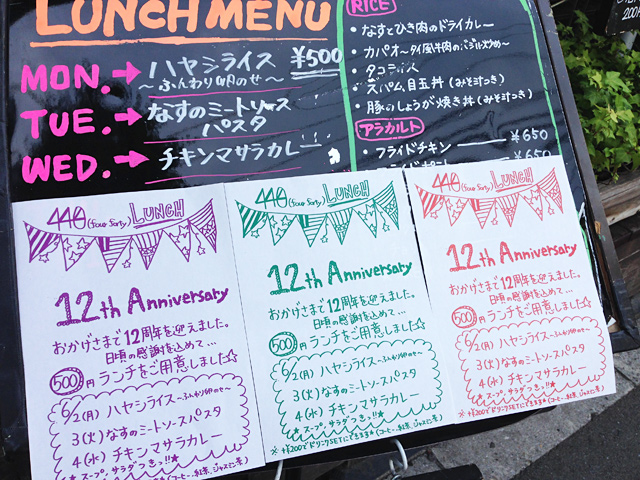 LUNCH MENU
MON.→ ハヤシライス ¥500
〜ふんわり卵のせ〜
TUE.→ なすのミートソース
パスタ
WED.→ チキンマサラカレー
RICE
・なすとひき肉のドライカレー
・ガパオ〜タイ風牛肉のバジル炒め〜
・タコライス
・スパム、目玉丼(みそ汁つき)
・豚のしょうが焼き丼(みそ汁つき)
アラカルト
・フライドチキン ¥650
フライドポテト ¥650
440 (four forty) LUNCH
12th Anniversary
おかげさまで12周年を迎えました。
日頃の感謝を込めて...
500円ランチをご用意しました☆
6/2(月) ハヤシライス〜ふんわり卵のせ〜
3(火) なすのミートソースパスタ
4(水) チキンマサラカレー
★スープ、サラダつきっ!!★
440 (four forty) LUNCH
12th Anniversary
おかげさまで12周年を迎えました。
日頃の感謝を込めて...
500円ランチをご用意しました☆
6/2(月) ハヤシライス〜ふんわり卵のせ〜
3(火) なすのミートソースパスタ
4(水) チキンマサラカレー
★スープ、サラダつきっ!!★
※+¥200でドリンクSETにできます★(コーヒー、紅茶、ジャスミン茶)
440 (four forty) LUNCH
12th Anniversary
おかげさまで12周年を迎えました。
日頃の感謝を込めて...
500円ランチをご用意しました☆
6/2(月) ハヤシライス〜ふんわり卵のせ〜
3(火) なすのミートソースパスタ
4(水) チキンマサラカレー
★スープ、サラダつきっ!!★
※+¥200でドリンクSETにできます★(コーヒー、紅茶、ジャスミン茶)